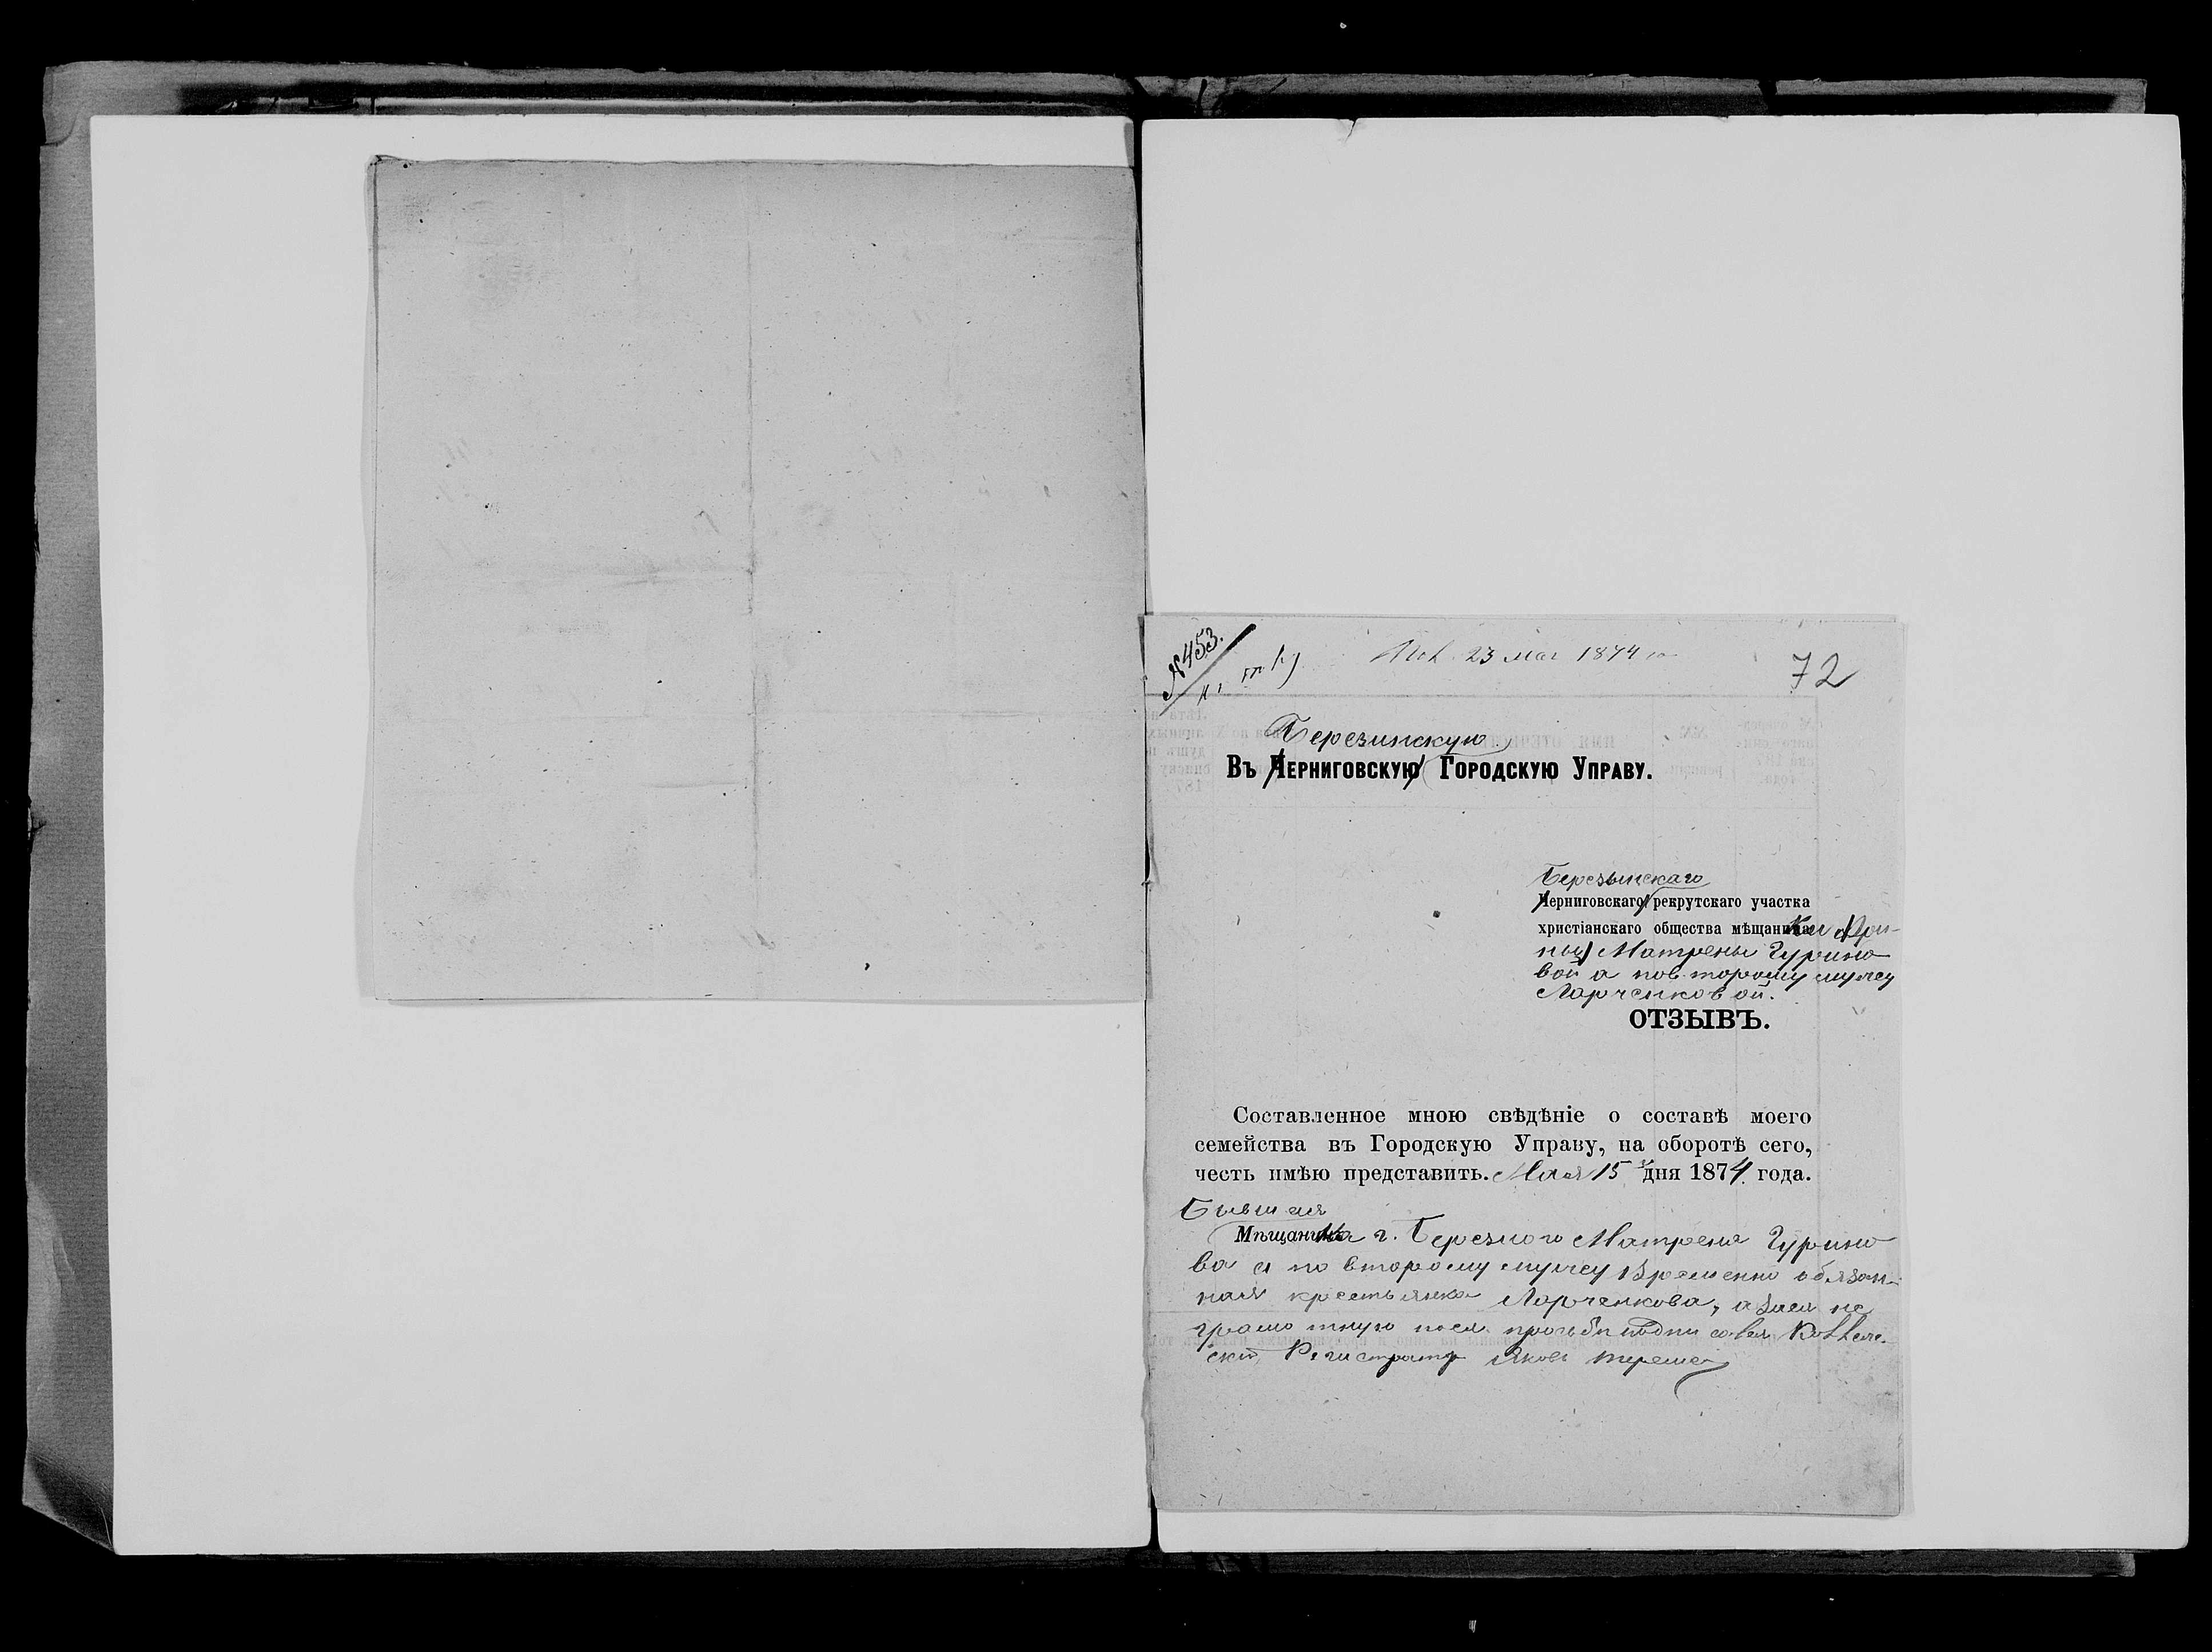 №453.
23 мая 1874 го
72
Березинскую
Въ Черниговскую Городскую Управу.
Березинскаго
Черниговскаго рекрутскаго участка
христіанскаго общества мѣщанинаки Ири-
ны) Матрены Гурино
вой а повторому мужу
Ларченковой.
ОТЗЫВЪ.
Составленное мною свѣдѣніе о составѣ моего
семейства въ Городскую Управу, на оборотѣ сего,
честь имѣю представить. Мая 15 дня 1874 года.
Бывшая
Мѣщанинка г. Березного Матрена Гурино
ва а по второму мужу временно обязан-
ная крестьянка Ларченкова, а за ея не
грамотную по ея прозьби подписалъ Коллеж-
скій Регистраторъ Яковъ